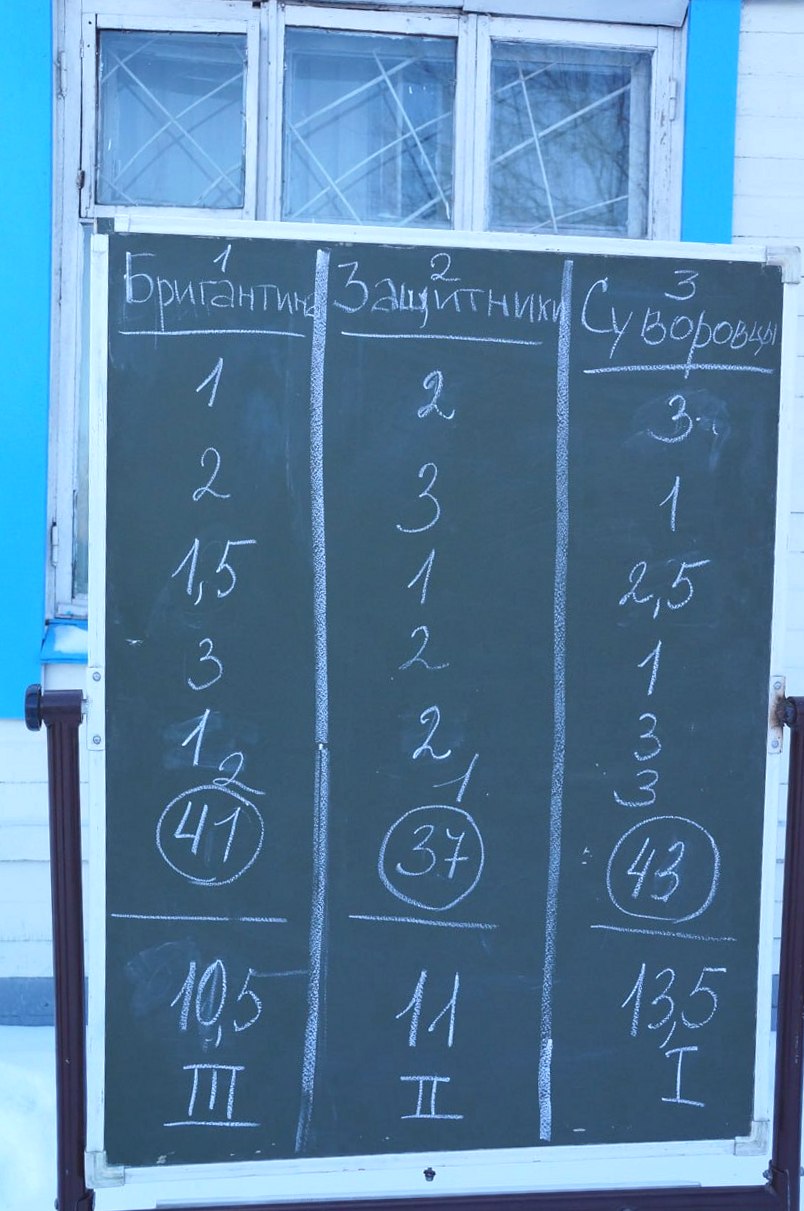 1 2 3
Бригантина Защитники Суворовцы
1 2 3
2 3 1
1,5 1 2,5
3 2 1
1 2 3
2 1 3
41 37 43
10,5 11 13,5
III II I